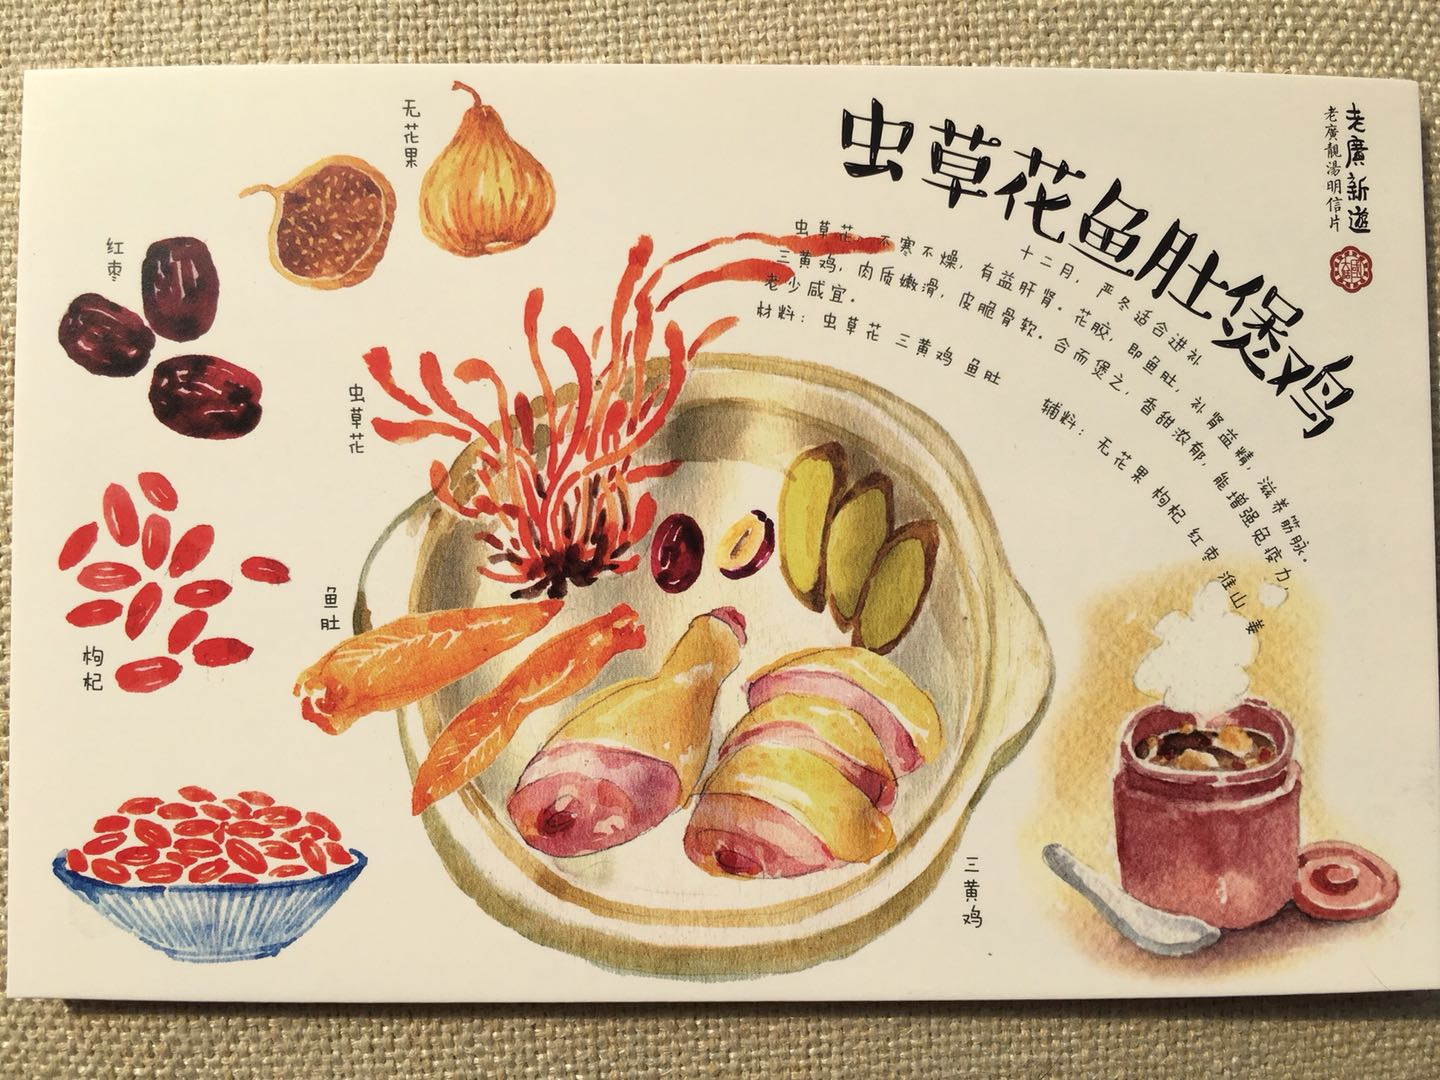 虫草花鱼肚煲鸡
老廣新遊
老廣靚湯明信片
十二月，严冬适合进补
虫草花，不寒不燥，有益肝肾。花胶，即鱼肚，补肾益精，滋养筋脉。
三黄鸡，肉质嫩滑，皮脆骨软。合而煲之，香甜浓郁，能增强免疫力，
老少咸宜。
材料：虫草花 三黄鸡 鱼肚 辅料：无花果 枸杞 红枣 淮山 姜
无花果
红枣
虫草花
鱼肚
枸杞
三黄鸡